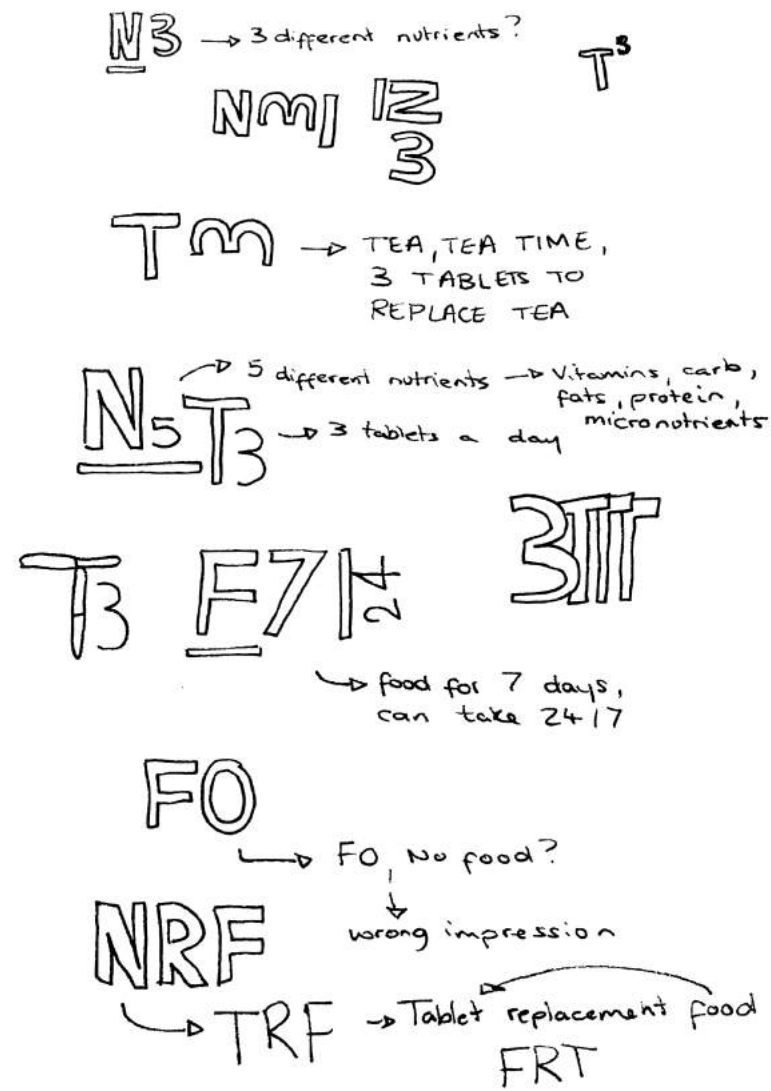 N3 → 3 different nutrients?
T³
NM| |Z
3
TM → TEA, TEA TIME,
3 TABLETS TO
REPLACE TEA
N5 → 5 different nutrients → Vitamins, carb,
fats, protein,
micronutrients
T3 → 3 tablets a day
3TTT
T3
F7|24
→ food for 7 days,
can take 24/7
FO
→ FO, No food?
wrong impression
NRF
→ TRF → Tablet replacement food
FRT